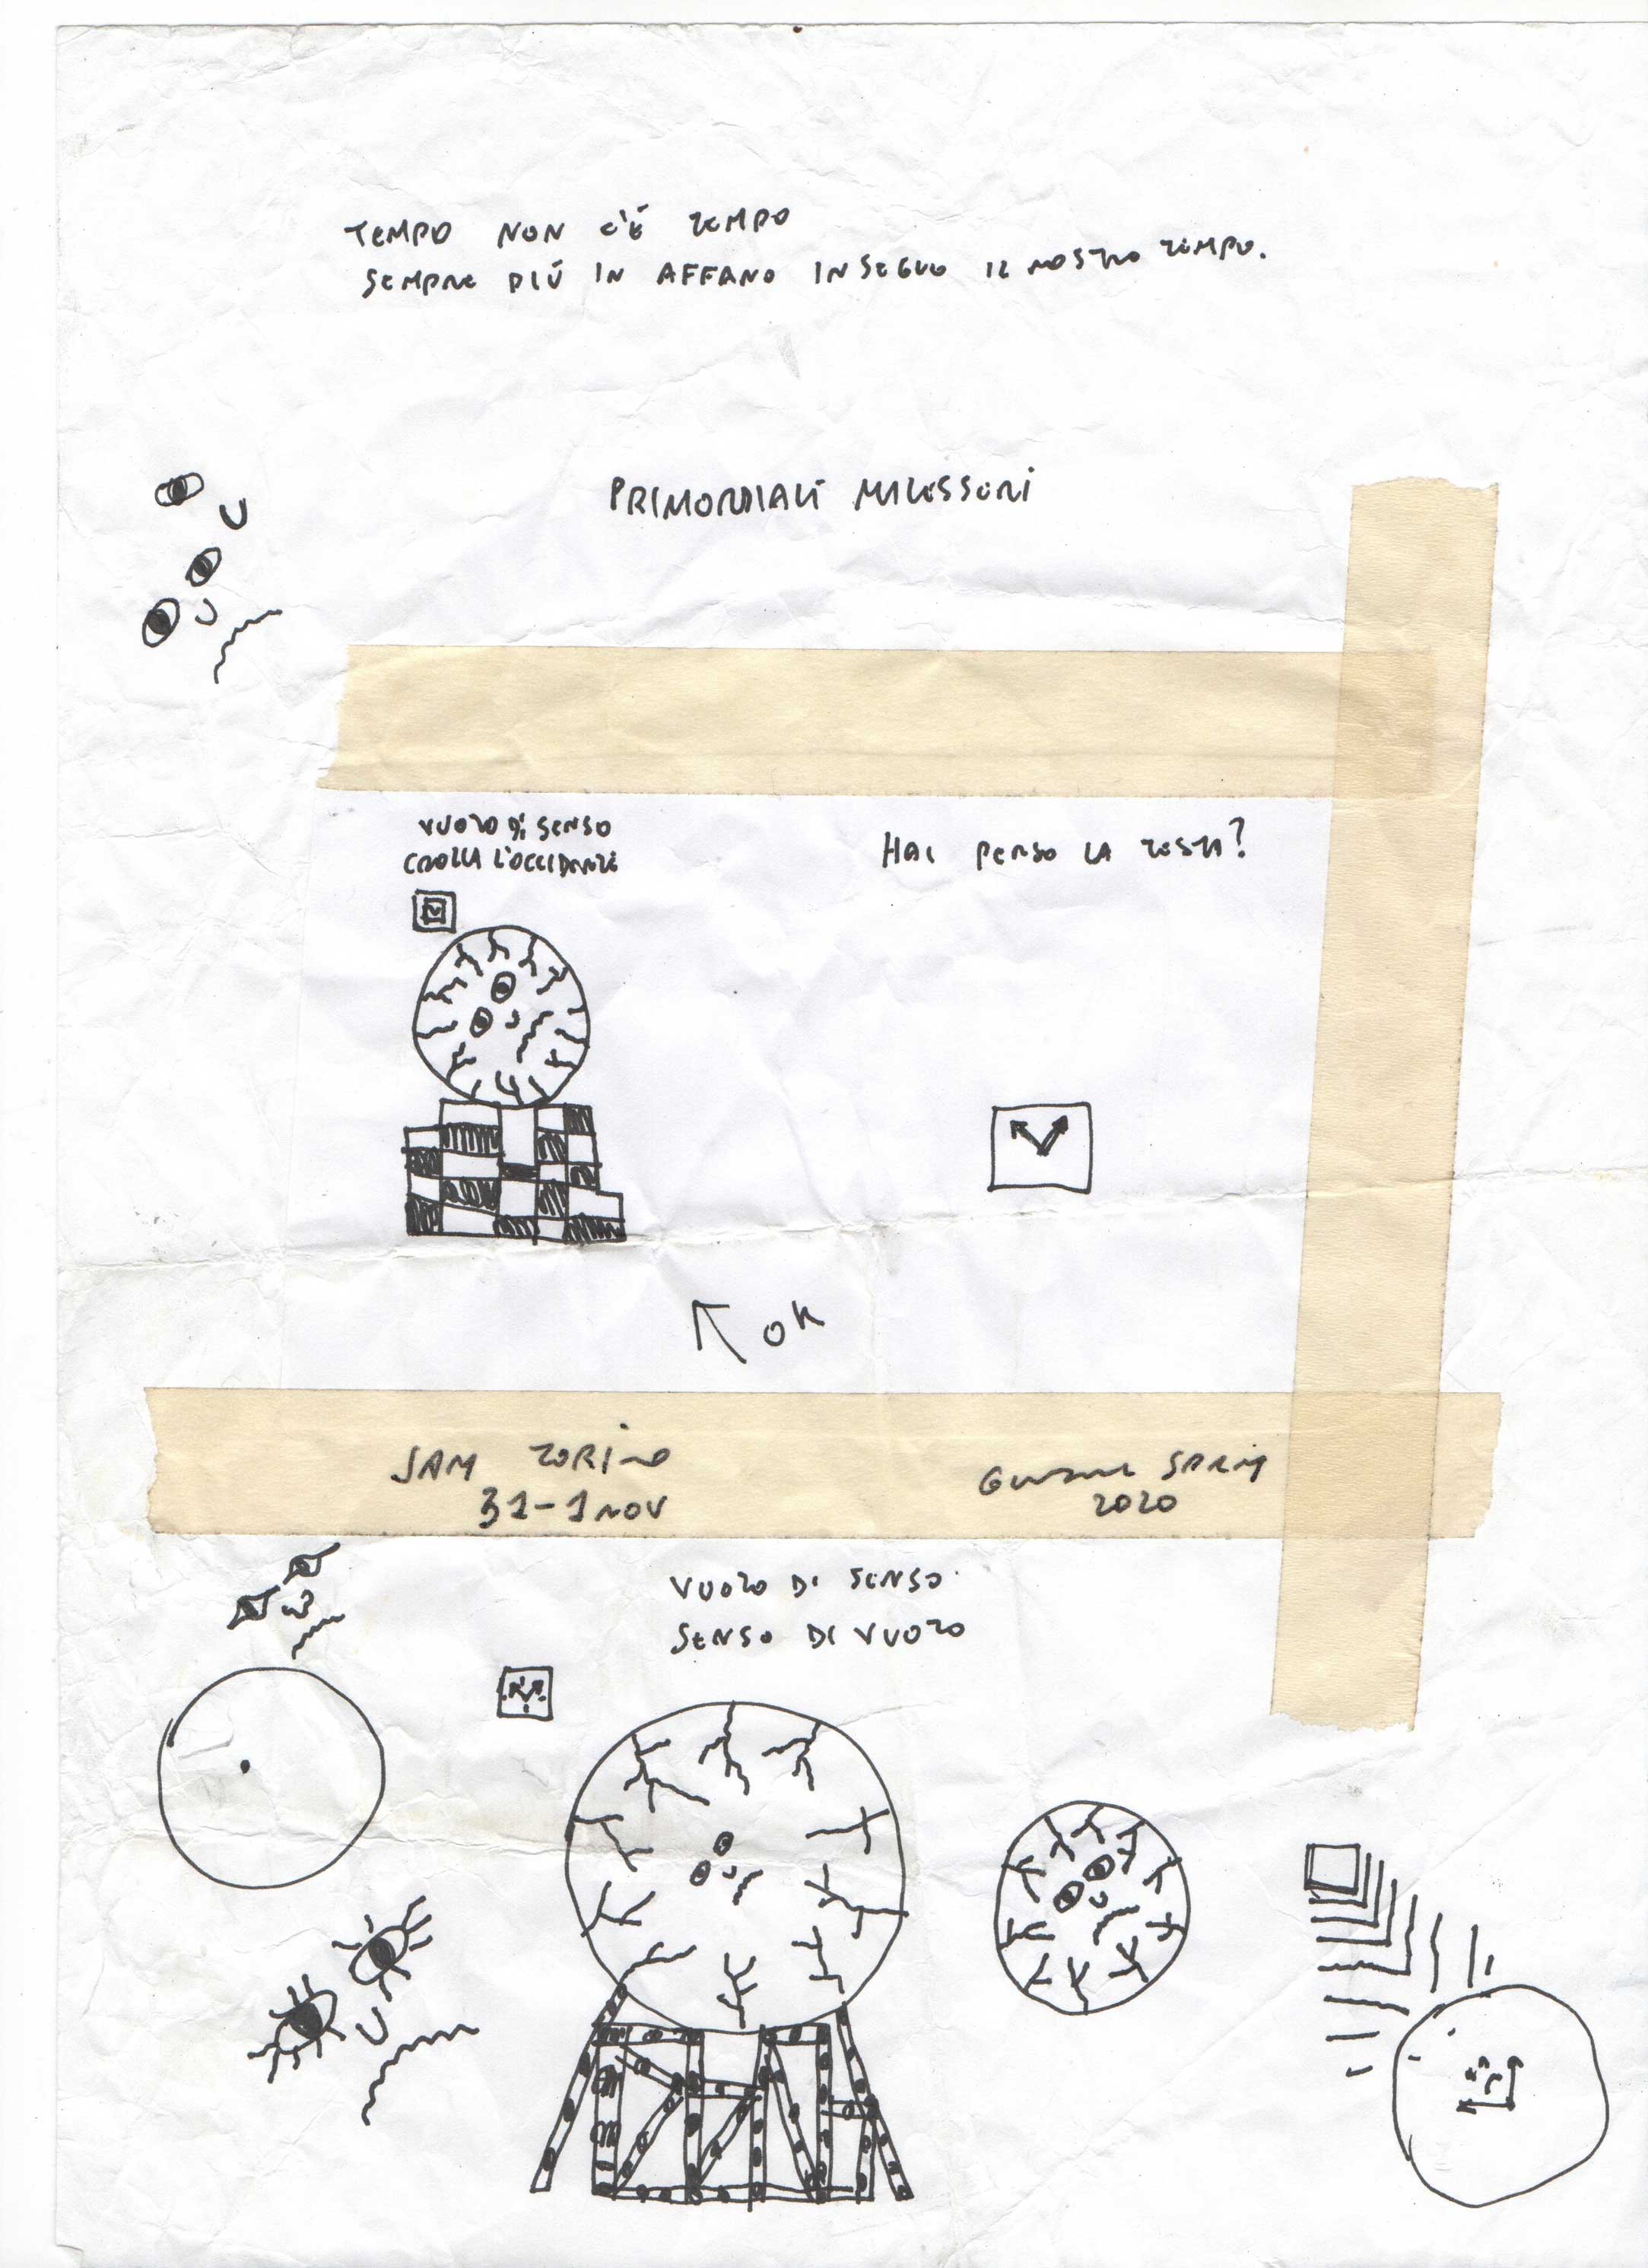 TEMPO NON C'È TEMPO
SEMPRE PIÙ IN AFFANO INSEGUO IL NOSTRO TEMPO.
PRIMORDIALI
VUOTO DI SENSO
CROLLA L'OCCIDENTE
HAI PERSO LA TESTA?
OK
JAM TORINO
31-1 NOV
2020
VUOTO DI SENSO
SENSO DI VUOTO